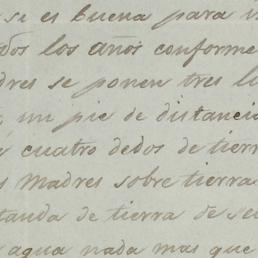 se es buena para
los años conforme
se ponen tres
un pie de distancia
cuatro dedos de tierra
Madres sobre tierra
tanda de tierra de
agua nada mas que